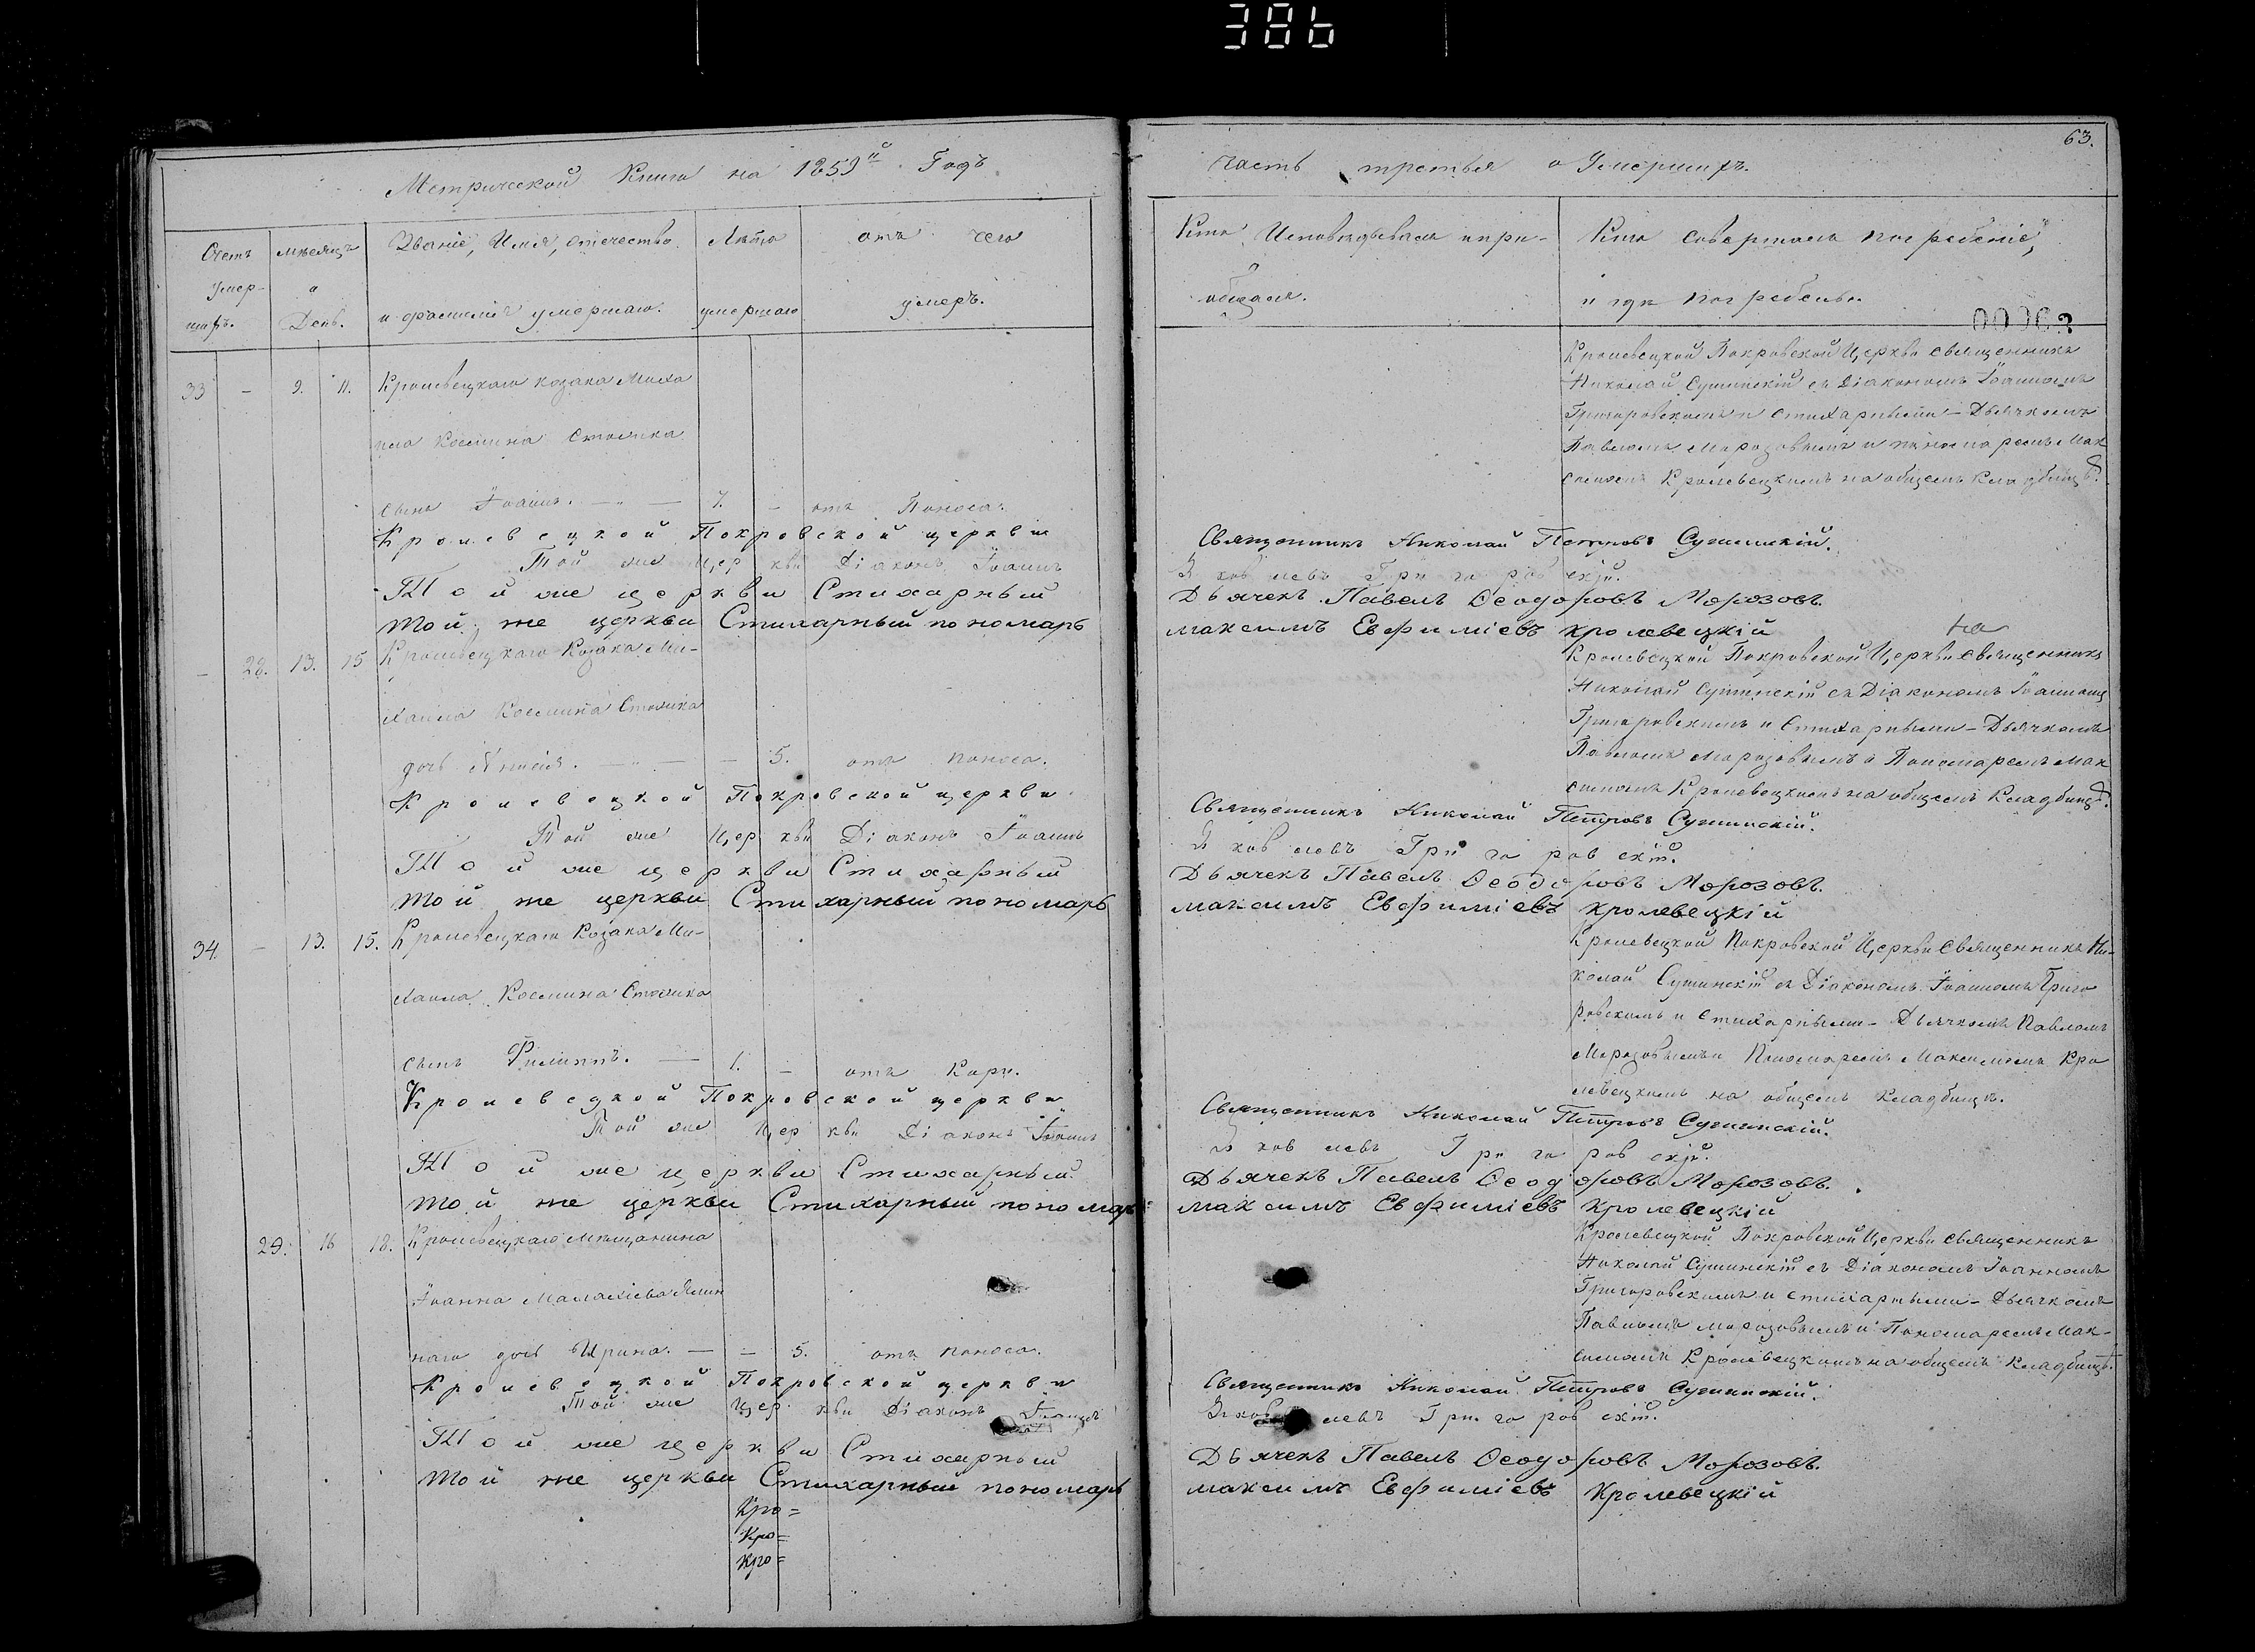 386
63.
Метрической Книги на 1859й Годъ
Часть третья о Умершихъ.
Счетъ умер-шихъ.
мѣсяцъ и День.
Званіе, Имя, отечество и фамилія умершаго.
Лѣта умершаго
отъ чего умеръ.
Кто Исповѣдывалъ и при-
общалъ.
Кто совершалъ погребеніе,
и гдѣ погребены.
33 - 9. 11. Кролевецкаго козака Миха
ила Космина
сынъ Іоаннъ. — „ — 7. - отъ Поноса.
Кролевецкой Покровской Церкви священникъ
Николай Сушинскій съ Діакономъ Іоанномъ
Григоровскимъ и Стихарными - Дьячкомъ
Павломъ Морозовымъ и пономаремъ Мак
симомъ Кролевецкимъ на общемъ кладбищѣ.
Кролевецкой Покровской церкви Священникъ Николай Петровъ Сушинскій.
Той же церкви Діаконъ Іоаннъ Яковлевъ Григоровскій.
Той же церкви Стихарный Дьячекъ Павелъ Ѳеодоровъ Морозовъ.
той же церкви Стихарный пономарь максимъ Евфиміевъ кролевецкій
- 28. 13. 15 Кролевецкаго Козака Ми-
хаила Космина
дочь — „ — - 5. отъ поноса.
на
Кролевецкой Покровской Церкви священникъ
Николай Сушинскій съ Діакономъ Іоанномъ
Григоровскимъ и Стихарными - Дьячкомъ
Павломъ Морозовымъ и Пономаремъ Мак
симомъ Кролевецкимъ на общемъ Кладбищѣ.
Кролевецкой Покровской церкви Священникъ Николай Петровъ Сушинскій.
Той же Церкви Діаконъ Іоаннъ Яковлевъ Григоровскій.
Той же церкви Стихарный Дьячекъ Павелъ Ѳеодоровъ Морозовъ.
той же церкви Стихарный пономарь максимъ Евфиміевъ кролевецкій
34. - 13. 15. Кролевецкаго Козака Ми-
хаила Космина
сынъ Филиппъ. — 1. - отъ Кори.
Кролевецкой Покровской Церкви Священникъ Ни-
колай Сушинскій съ Діакономъ Іоанномъ Григо
ровскимъ и Стихарными - Дьячкомъ Павломъ
Морозовымъ и Пономаремъ Максимомъ Кро
левецкимъ на общемъ кладбищѣ.
Кролевецкой Покровской церкви Священникъ Николай Петровъ Сушинскій.
Той же Церкви Діаконъ Іоаннъ Яковлевъ Григоровскій.
Той же церкви Стихарный Дьячекъ Павелъ Ѳеодоровъ Морозовъ.
той же церкви Стихарный пономарь максимъ Евфиміевъ Кролевецкій
29. 16 18. Кролевецкаго Мѣщанина
Іоанна Малахіева
наго дочь Ирина. — - 5. отъ поноса.
Кролевецкой Покровской Церкви священникъ
Николай Сушинскій съ Діакономъ Іоанномъ
Григоровскимъ и стихарными - Дьячкомъ
Павломъ Морозовымъ и Пономаремъ Мак-
симомъ Кролевецкимъ на общемъ Кладбищѣ.
Кролевецкой Покровской церкви Священникъ Николай Петровъ Сушинскій.
Той же Церкви Діаконъ Іоаннъ Яковлевъ Григоровскій.
Той же церкви Стихарный Дьячекъ Павелъ Ѳеодоровъ Морозовъ.
той же церкви Стихарный пономарь максимъ Евфиміевъ Кролевецкій
Кро=
Кро=
Кро=